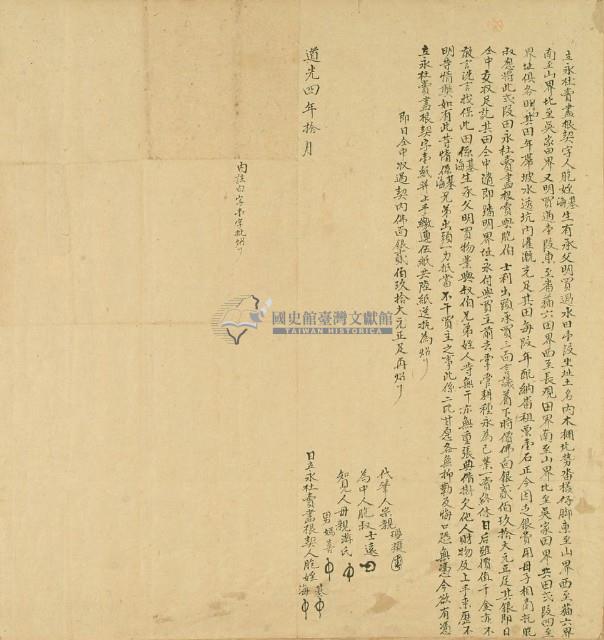 立永杜賣盡根契字人胞姪基海生有承父明買過水田壹段坐址土名內木棚坑勞番樣仔脚東至山界西至猫六界
南至山界北至吳家田界又明買過壹段東至番猫六田界西至長观田界南至山界北至吳家田界共田弍段四至
界址俱各明其田年帶坡水透坑內灌溉充足其田每段年配納番租粟壹石正今因乏銀費用母子相商托胞
叔愿將此弍段田永杜賣盡根賣與胞伯士利出頭承買三面言議着下時價佛面銀貳伯玖拾大元正足其銀即日
仝中交收足訖其田仝中隨即踏明界址永付與買主前去掌管耕種永為己業一賣終休日后雖價值千金亦不
敢言洗言找保此田係基海生承父明買物業與叔伯兄弟姪人等無干亦無重張典借掛欠他人財物及上手來歷不
明等情弊如有此等情係基海兄弟出頭一力抵當不干買主之事此係二比甘愿各無抑勒反悔口恐無憑今欲有憑
立永杜賣盡根契字壹紙并上手繳連伍紙共陸紙送執為炤
即日仝中收過契內佛面銀貳伯玖拾大元正足再炤
代筆人宗親
為中人胞叔士遠
知見人母親游氏
男媽喜
道光四年拾月
日立永杜賣盡根契人胞姪基海
內註白字壹字批炤
國史館臺灣文獻館
TAIWAN HISTORICA